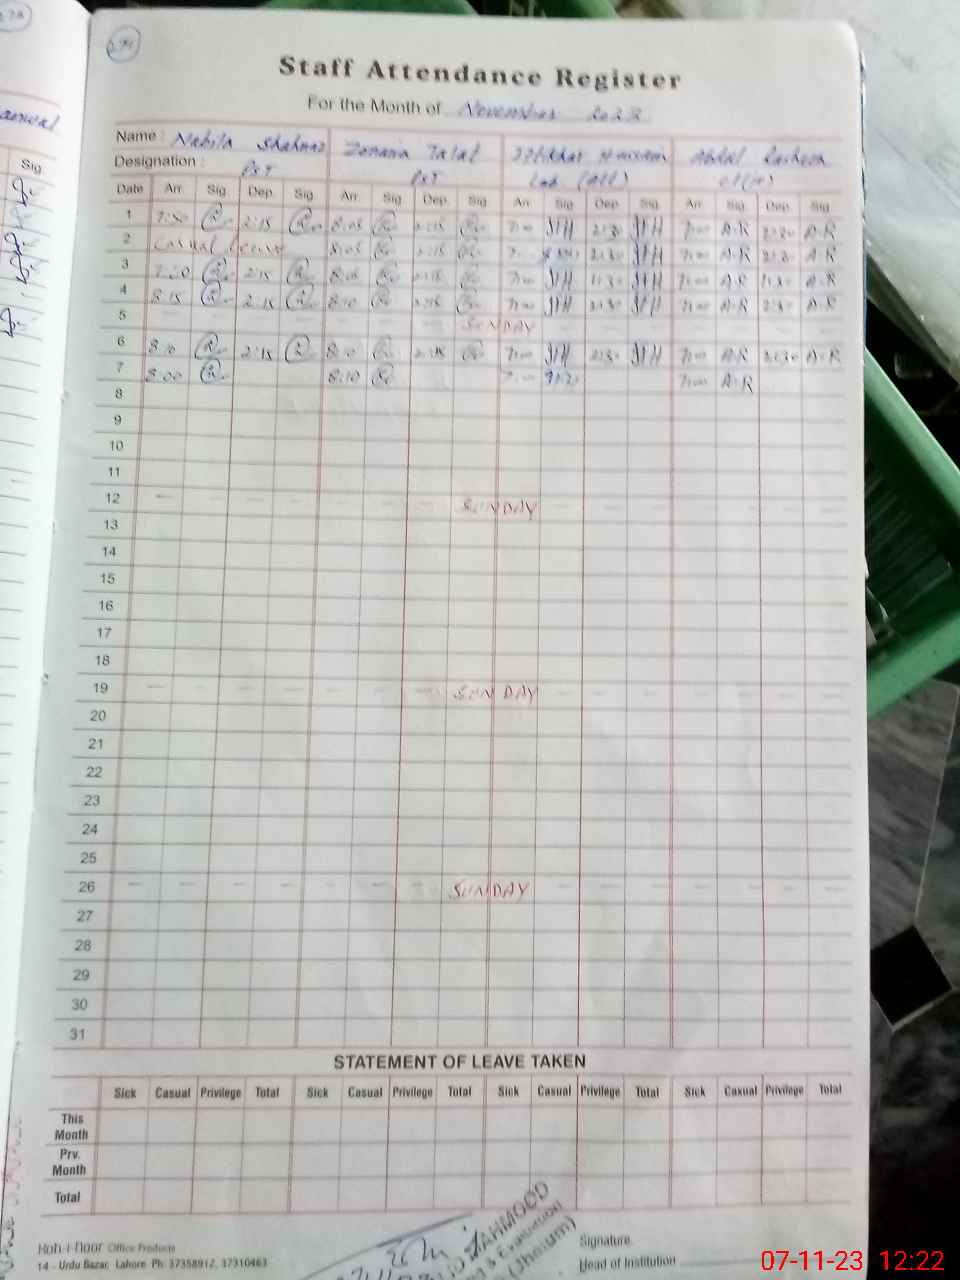 Staff Attendance Register
For the Month of November 2023
Name : Nabila Shahnaz Zonaria Talat Iftikhar Hussain Abdul Rasheed
Designation : PST PST Lab. (Att)
Date Arr. Sig. Dep. Sig. Arr. Sig. Dep. Sig. Arr. Sig. Dep. Sig. Arr. Sig. Dep. Sig.
1 7:50 2:15 8:05 2:15 7:00 2:30 7:00 A.R 2:30 A.R
2 Casual leave 8:05 2:15 7:00 2:30 7:00 A.R 2:30 A.R
3 7:50 2:15 8:05 2:15 7:00 2:30 7:00 A.R 2:30 A.R
4 8:15 2:15 8:10 2:15 7:00 2:30 7:00 A.R 2:30 A.R
5 SUNDAY
6 8:10 2:15 8:10 2:15 7:00 2:30 7:00 A.R 2:30 A.R
7 8:00 8:10 7:00 7:00 A.R
8
9
10
11
12 SUNDAY
13
14
15
16
17
18
19 SUNDAY
20
21
22
23
24
25
26 SUNDAY
27
28
29
30
31
STATEMENT OF LEAVE TAKEN
Sick Casual Privilege Total Sick Casual Privilege Total Sick Casual Privilege Total Sick Casual Privilege Total
This
Month
Prv.
Month
Total
Koh-i-Noor Office Products
14 - Urdu Bazar, Lahore Ph: 37358912, 37310463
MAHMOOD
& Evaluation
(Jhelum)
Signature
Head of Institution
07-11-23 12:22
Sig.